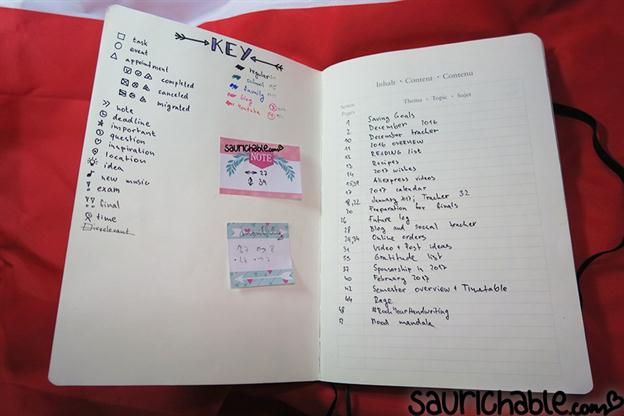 KEY
task
event
appointment
completed
canceled
migrated
note
deadline
important
question
inspiration
location
idea
new music
exam
final
time
Irrelevant
regular
school
family
blog
Youtube
saurichable.com
NOTE
27
Inhalt • Content • Contenu
Seiten
Pages
Thema • Topic • Sujet
Saving Goals
2 December 2016
December tracker
2016 overview
READING list
Recipes
2017 wishes
Aliexpress videos
2017 calendar
January 2017; Tracker
20 Preparation for finals
Future log
28 Blog and social tracker
Online orders
34 Video + Post ideas
Gratitude list
37 Sponsorship in 2017
40 February 2017
42 Semester overview + Timetable
44 Page
48 #RockYourHandwriting
Mood mandala
saurichable.com